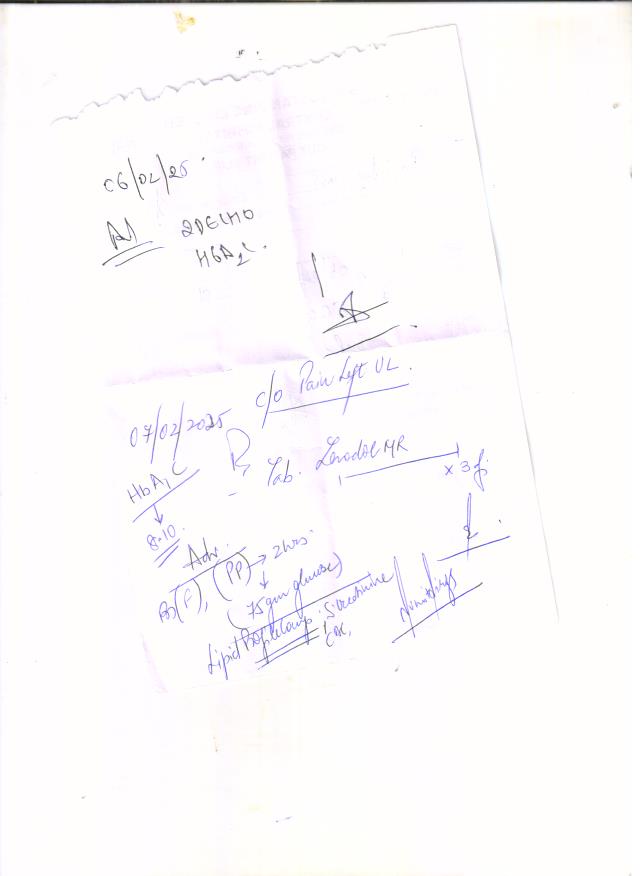 06/02/25
Adv 2DECHO
HbA1C.
07/02/2025 c/o Pain Left UL.
HbA1C
↓
8.10
Rx
- Tab. Zerodol MR
1 — 1 x 3
Adv.
BS (F), (PP) → 2hrs.
↓
(75gm glucose)
Lipid Profile, S. Creatinine
CBC,